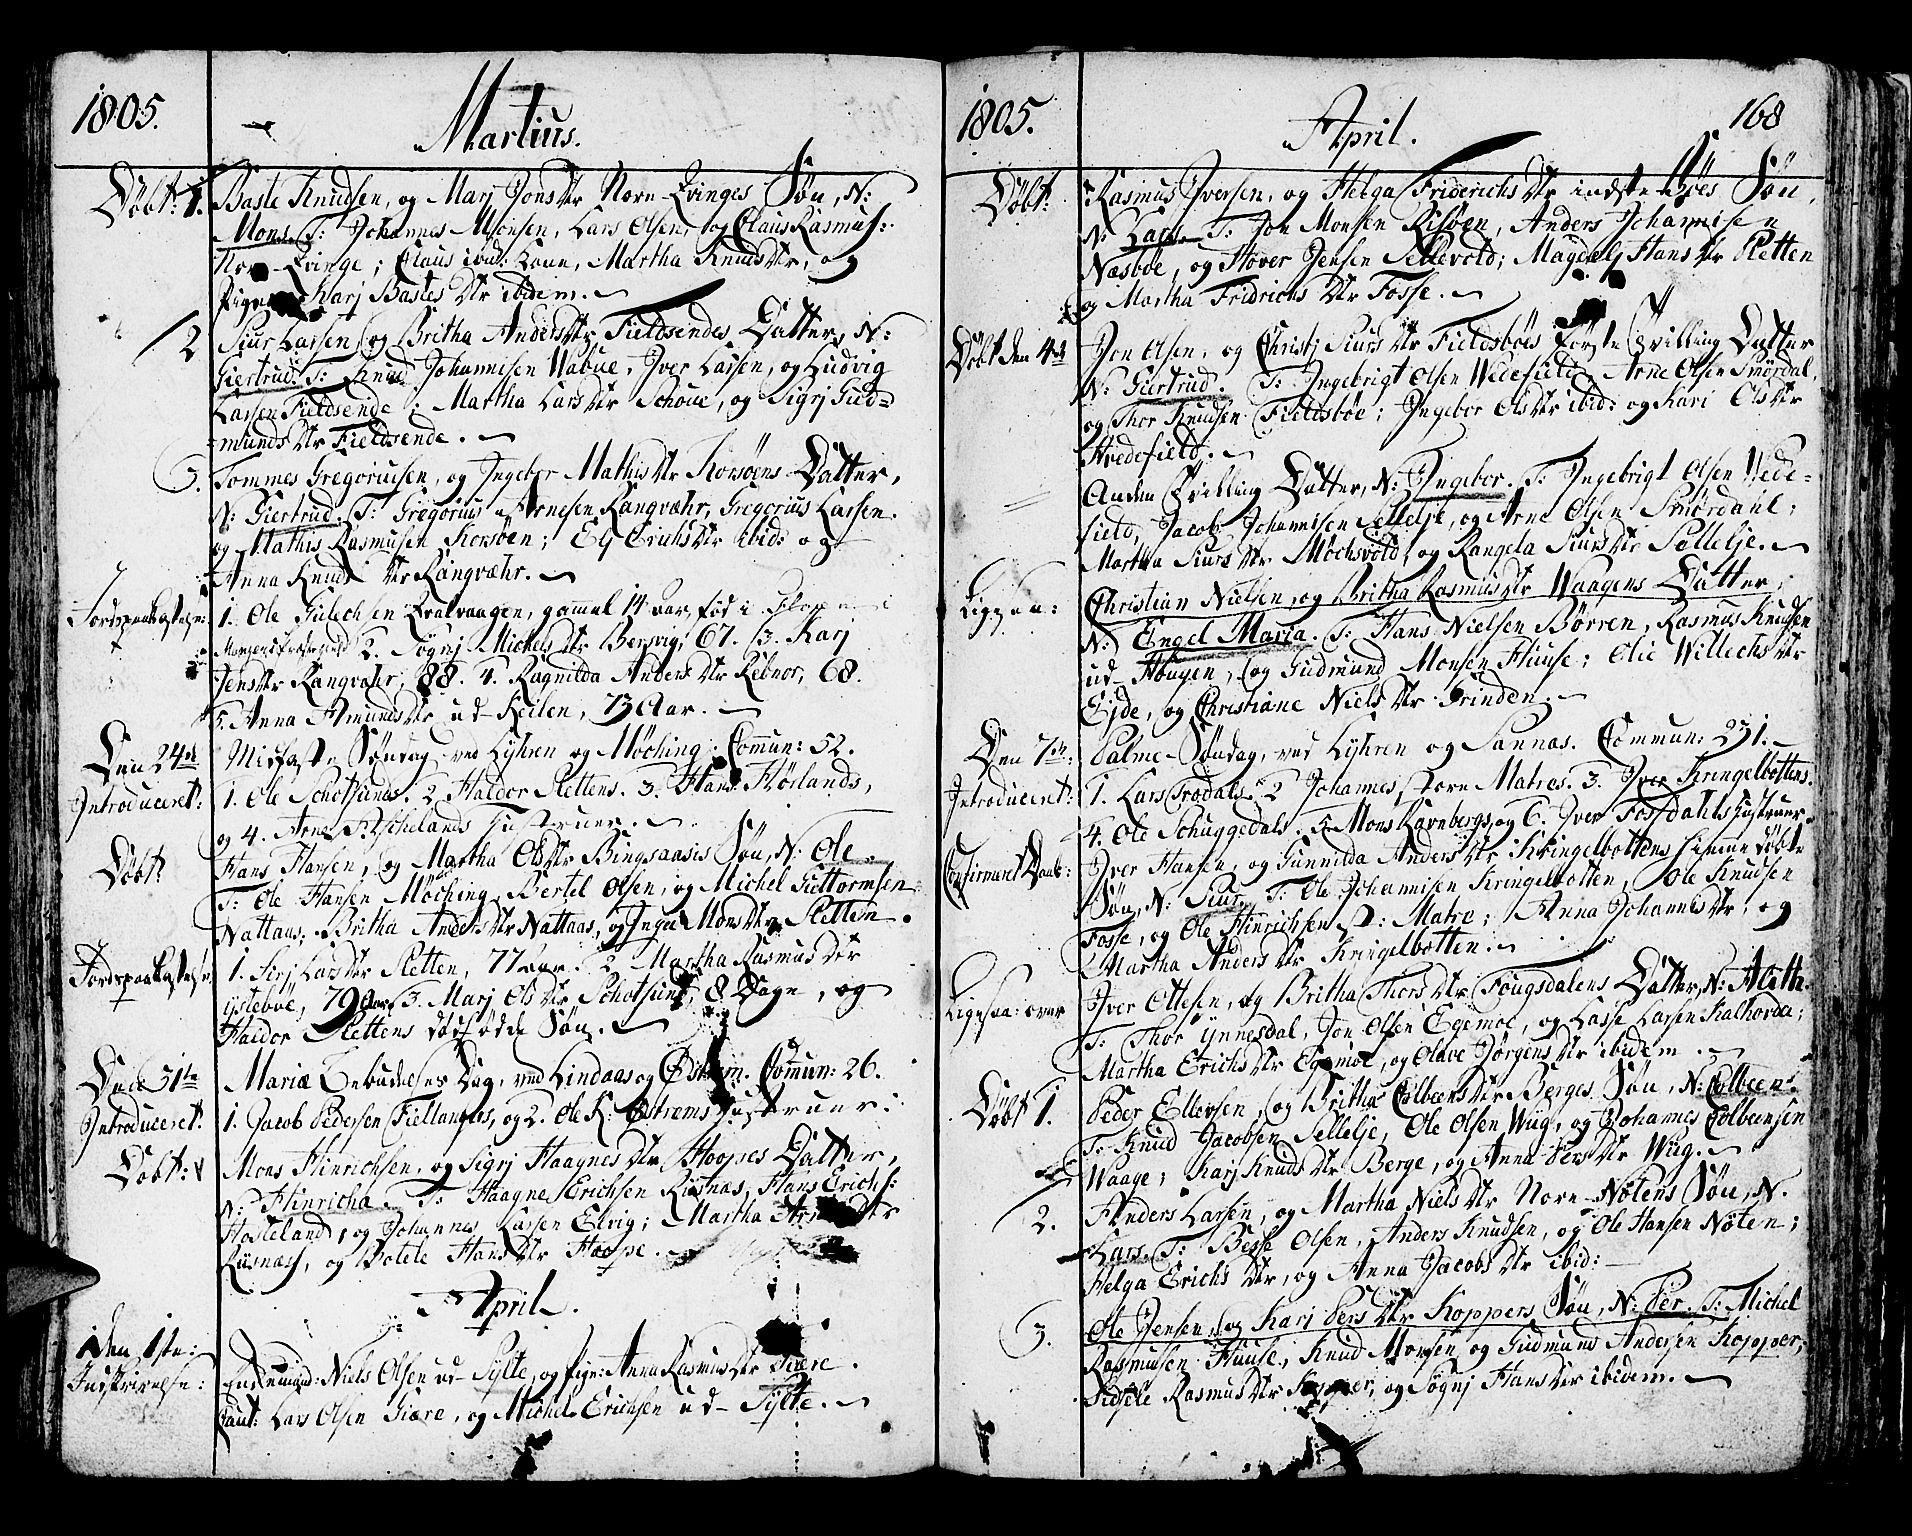 1805. Martius.
Döbt: 1. Baste Knudsen, og Marj Jons Dtr Norn Qvinges Sön, N:
Mons. T: Johannes Monsen, Lars Olsen, og Claus Rasmus:
Qvinge; Claus ibid: Martha Knuds Dtr, og
Karj Bastes Dtr ibidem.
2 Siur Larsen, og Britha Anders Dtr Fieldsendes Datter, N:
Giertrud. T: Knud Johannisen Nabue, Iver Larsen, og Ludvig
Larsen Fieldsende; Martha Lars Dtr Schoue, og Sigrj Gud=
munds Dtr Fieldsende.
3. Tommes Gregoriusen, og Ingebor Mathis Dtr Korsöens Datter,
N: Giertrud. T: Gregorius Arnesen Rangvæhr, Gregorius Larsen
og Mathis Rasmusen Korsöen; Erichs Dtr ibid: og
Anna Knuds Dtr Rangvæhr.
Jordspaakastelse: 1. Ole Gulechsen gammel 14 aar, föd i
2. Sögnj Michels Dtr Bersvig, 67. 3. Karj
Jens Dtr Rangvæhr, 88. 4. Ragnilda Anders Dtr Rebnor, 68.
5. Anna Amunds Dtr ud-Keilen, 73 Aar.
Den 24de Midfaste Söndag ved Lyhren og Möching. Commun: 52.
Introduceret: 1. Ole Schotsunds. 2 Haldor Slettens. 3. Hans Hörlands,
og 4. Arne Hustruer.
Döbt Hans Hansen, og Martha Ols Dtr Bingsaasis Sön, N: Ole.
T: Ole Hansen Möching, Bertel Olsen, og Michel Guttormsen
Nattaas; Britha Anders Dtr Nattaas, og Inga Mons Dtr Sletten.
Jordspaakastelse 1. Sirj Lars Dtr Sletten, 77 aar. 2 Martha Rasmus Dtr
ysteböe, 79 Aar 3. Marj Ols Dtr Schotsund, 8 Dage, og
Haldor Slettens dödfödde Sön.
Den 31te Mariæ Bebudelses Dag, ved Lindaas og Öström. Comun: 26.
Introduceret. 1. Jacob Pedersen Fiellangers, og 2. Ole K: Öströms Hustruer:
Döbt: 1 Mons Hinrichsen, og Sigrj Haagnes Dtr Hoopes Datter,
N: Hinricha. T: Haagne Erichsen Riisnæs, Hans Erichs:
Hosteland, og Johannes Larsen Elvig; Martha Dtr
Riisnæss, og Botele Hans Dtr Hoope.
April.
den 1ste: Niels Olsen ud-Sylte, og Pige: Anna Rasmus Dtr Giære.
Indskrivelse: Caut: Lars Olsen Giære, og Michel Erichsen ud-Sylte.
1805. April. 168
Döbt: Rasmus Iversen, og Helga Friderichs Dtr indste Böes Sön,
N: Lars. T: Jon Monsen Risöen, Anders Johannisen
Næsböe, og Hover Jensen Sellevold; Magdelj Hans Dtr Sletten
og Martha Fridrichs Dtr Fosse.
Döbt den 4de Jon Olsen, og Christj Siurs Dtr Fieldsböes förste Tvilling Datter
N: Giertrud. T: Ingebrigt Olsen Wedefield, Arne Olsen Smördal,
og Thor Knudsen Fieldsböe; Ingebor Ols Dtr ibid: og Kari Ols Dtr
Hvedefield.
Anden Tvilling Datter, N: Ingebor. T: Ingebrigt Olsen Vede-
field, Jacob Johannisen Sellelje, og Arne Olsen Smördahl;
Martha Siurs Dtr Mochsvold, og Rangela Siurs Dtr Sellelje.
Christian Nielsen, og Britha Rasmus Dtr Waagens Datter,
N: Engel Maria. T: Hans Nielsen Börren, Rasmus Knudsen
ud-Hougen, og Gudmund Monsen Huuse; Olie Willechs Dtr
Ejde, og Christiane Niels Dtr Grinden.
Den 7de: Palme-Söndag, ved Lyhren og Sannas. Commun: 271.
Introduceret: 1. Lars Trodals. 2 Johannes store Matres. 3. Iver Kringelbottens.
4. Ole Schuggedals. 5. Mons Ravnbergs, og 6. Iver Fossdahls Hustruer.
Confirmeret Daab: Iver Hansen, og Gunnilda Anders Dtr Kringelbottens hiemme döbte
Sön, N: Siur. T: Ole Johannisen Kringelbotten, Ole Knudsen
Fosse, og Ole Hinrichsen St: Matre; Anna Johannes Dtr, og
Martha Anders Dtr Kringelbotten.
Iver Ottesen, og Britha Thors Dtr Fougsdalens Datter, N: Aleth.
T: Thor Ynnesdal, Jon Olsen Egemoe, og Lasse Larsen Kalhordee;
Martha Erichs Dtr Egemoe, og Olave Jörgens Dtr ibidem.
Döbt 1. Peder Ellevsen, og Britha Colbeens Dtr Berges Sön, N: Colbeen.
T: Knud Jacobsen Sellelje, Ole Olsen Wiig, og Johannes Colbeensen
Waage; Karj Knuds Dtr Berge, og Anna Pers Dtr Wiig.
2. Anders Larsen, og Martha Niels Dtr Norn-Nötens Sön, N.
Lars. T: Besse Olsen, Anders Knudsen, og Ole Hansen Nöten;
Helga Erichs Dtr, og Anna Jacobs Dtr ibid:
3. Ole Jensen, og Karj Pers Dtr Koppers Sön, N: Per. T: Michel
Rasmusen Huuse, Knud Monsen, og Gudmund Andersen Kopper;
Sidsele Rasmus Dtr Kopper, og Sögnj Hans Dtr ibidem.